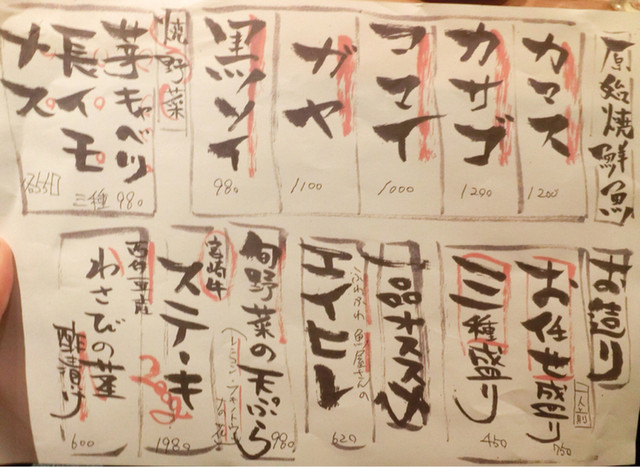 原始焼鮮魚
カマス
1200
カサゴ
1200
コマイ
1000
ガヤ
1100
黒ソイ
980
焼野菜
芽キャベツ
長イモ
ナス
三種 980
お造り
お任せ盛り
一人前
750
三種盛り
450
一品オススメ
魚屋さんの
エイヒレ
620
旬野菜の天ぷら
980
宮崎牛
ステーキ
200g
1980
わさびの茎
酢漬け
600